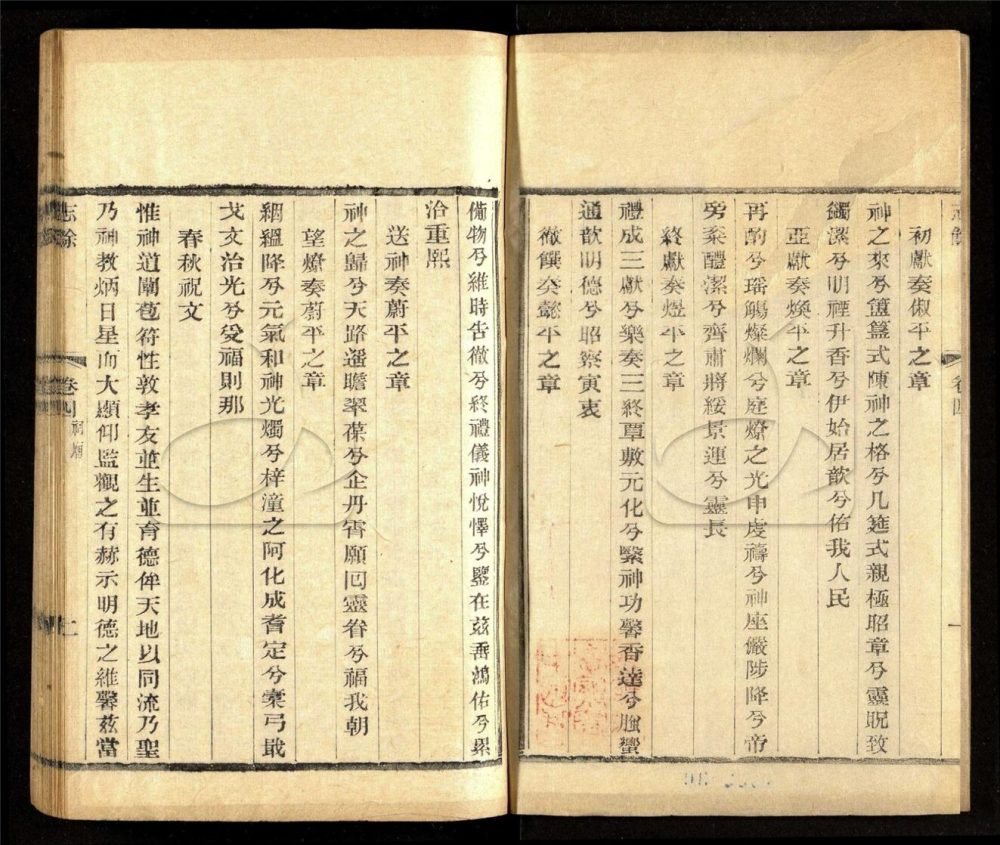 初獻奏俶平之章
神之來兮籩簋式陳神之格兮几筵式親極昭章兮靈貺致
蠲潔兮明禋升香兮伊始居歆兮佑我人民
亞獻奏煥平之章
再酌兮瑤觴燦爛兮庭燎之光申虔禱兮神座儼陟降兮帝
旁粢醴潔兮齊肅將綏景運兮靈長
終獻奏煜平之章
禮成三獻兮樂奏三終覃敷元化兮繄神功馨香達兮肸蠁
通歆明德兮昭察寅衷
徹饌奏懿平之章
志餘
卷四
一
備物兮維時告徹兮終禮儀神悅懌兮鑒在茲垂鴻佑兮累
洽重熙
送神奏蔚平之章
神之歸兮天路遙瞻翠葆兮企丹霄願回靈眷兮福我朝
望燎奏蔚平之章
絪縕降兮元氣和神光燭兮梓潼之阿化成耆定兮櫜弓戢
戈文治光兮受福則那
春秋祝文
惟神道闡苞符性敦孝友並生並育德侔天地以同流乃聖
乃神教炳日星而大顯仰監觀之有赫示明德之維馨茲當
志餘
卷四
祠廟
二